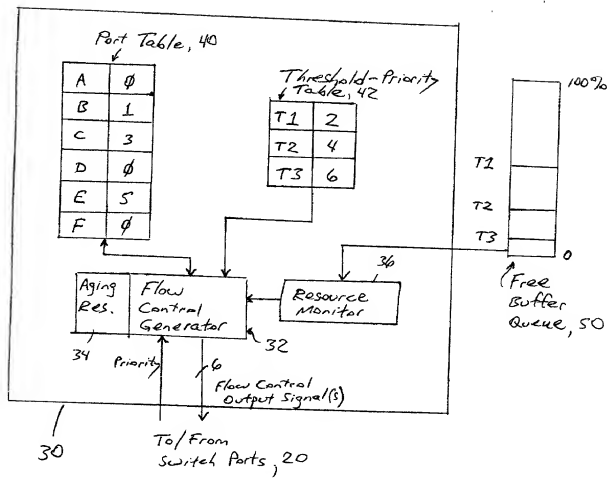 Port Table, 40
A ∅
B 1
C 3
D ∅
E 5
F ∅
Threshold-Priority
Table, 42
T1 2
T2 4
T3 6
100%
T1
T2
T3
0
Free
Buffer
Queue, 50
Aging
Res.
34
Flow
Control
Generator
32
36
Resource
Monitor
Priority
6
Flow Control
Output Signal(s)
30
To/From
Switch Ports, 20